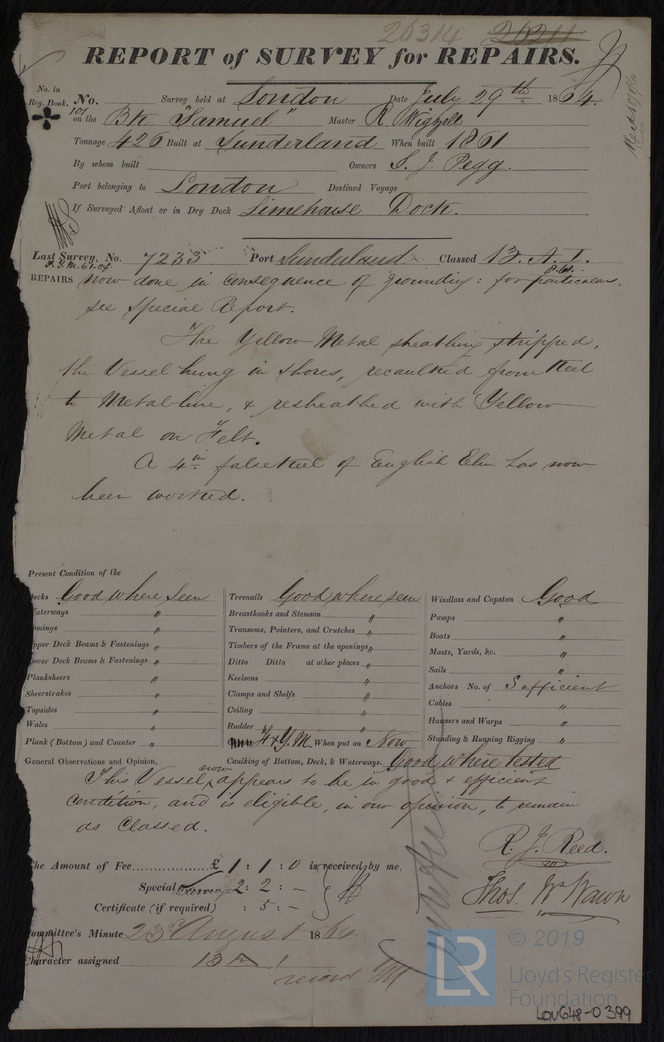 26314 26211
REPORT of SURVEY for REPAIRS.
No. in Reg. Book. No. Survey held at London Date July 29th 1864.
101 on the Bk "Samuel" Master R. Wigzell
Tonnage 426 Built at Sunderland When built 1861
By whom built Owners S. J. Pegg.
Port belonging to London Destined Voyage
If Surveyed Afloat or in Dry Dock Limehouse Dock.
Last Survey, No. 7233 Port Sunderland Classed 13. A. 1.
REPAIRS now done in consequence of grounding: for particulars,
see Special Report.
The Yellow Metal sheathing stripped,
the Vessel hung in shores, recaulked from Keel
to Metal-line, & resheathed with Yellow
Metal on Felt.
A 4 in falsekeel of English Elm has now
been worked.
Present Condition of the
Decks Good where seen Treenails Good where seen Windlass and Capstan Good
Waterways " Breasthooks and Stemson " Pumps "
Linings " Transoms, Pointers, and Crutches " Boats "
Upper Deck Beams & Fastenings " Timbers of the Frame at the openings " Masts, Yards, &c. "
Lower Deck Beams & Fastenings " Ditto Ditto at other places " Sails "
Planksheers " Keelsons " Anchors No. of Sufficient
Sheerstrakes " Clamps and Shelfs " Cables "
Topsides " Ceiling " Hawsers and Warps "
Wales " Rudder " Standing & Running Rigging "
Plank (Bottom) and Counter " F & Y.M. When put on Now
General Observations and Opinion, Caulking of Bottom, Deck, & Waterways. Good where tested
This Vessel now appears to be in good & efficient
condition, and is eligible, in our opinion, to remain
as Classed.
R. J. Reed.
The Amount of Fee £ 1 : 1 : 0 is received by me,
Special 2 : 2 : -
Thos. Wm Wawn
Certificate (if required) : 5 : -
Committee's Minute 23rd August 1864
Character assigned 13 A 1
record
© 2019
LR
Lloyd's Register
Foundation
LON648-0399